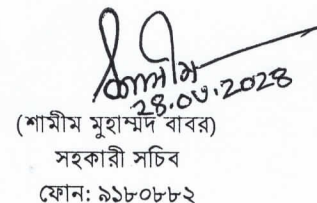 ২৪.০৩.২০২৪
(শামীম মুহাম্মদ বাবর)
সহকারী সচিব
ফোন: ৯১৮০৮৮২